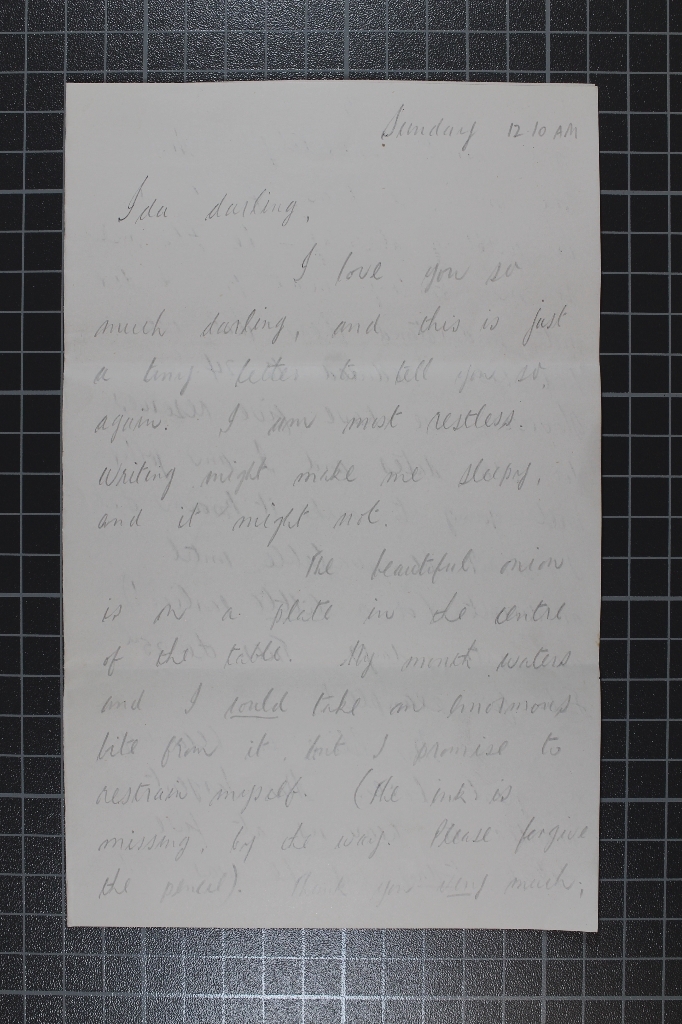 Sunday 12 10 AM
Ida darling,
I love you so
much darling, and this is just
a tiny letter to tell you so
again. I am most restless.
Writing might make me sleepy,
and it might not.
The beautiful onion
is on a plate in the centre
of the table. My mouth waters
and I could take an enormous
bite from it, but I promise to
restrain myself. (The ink is
missing, by the way. Please forgive
the pencil). Thank you very much,